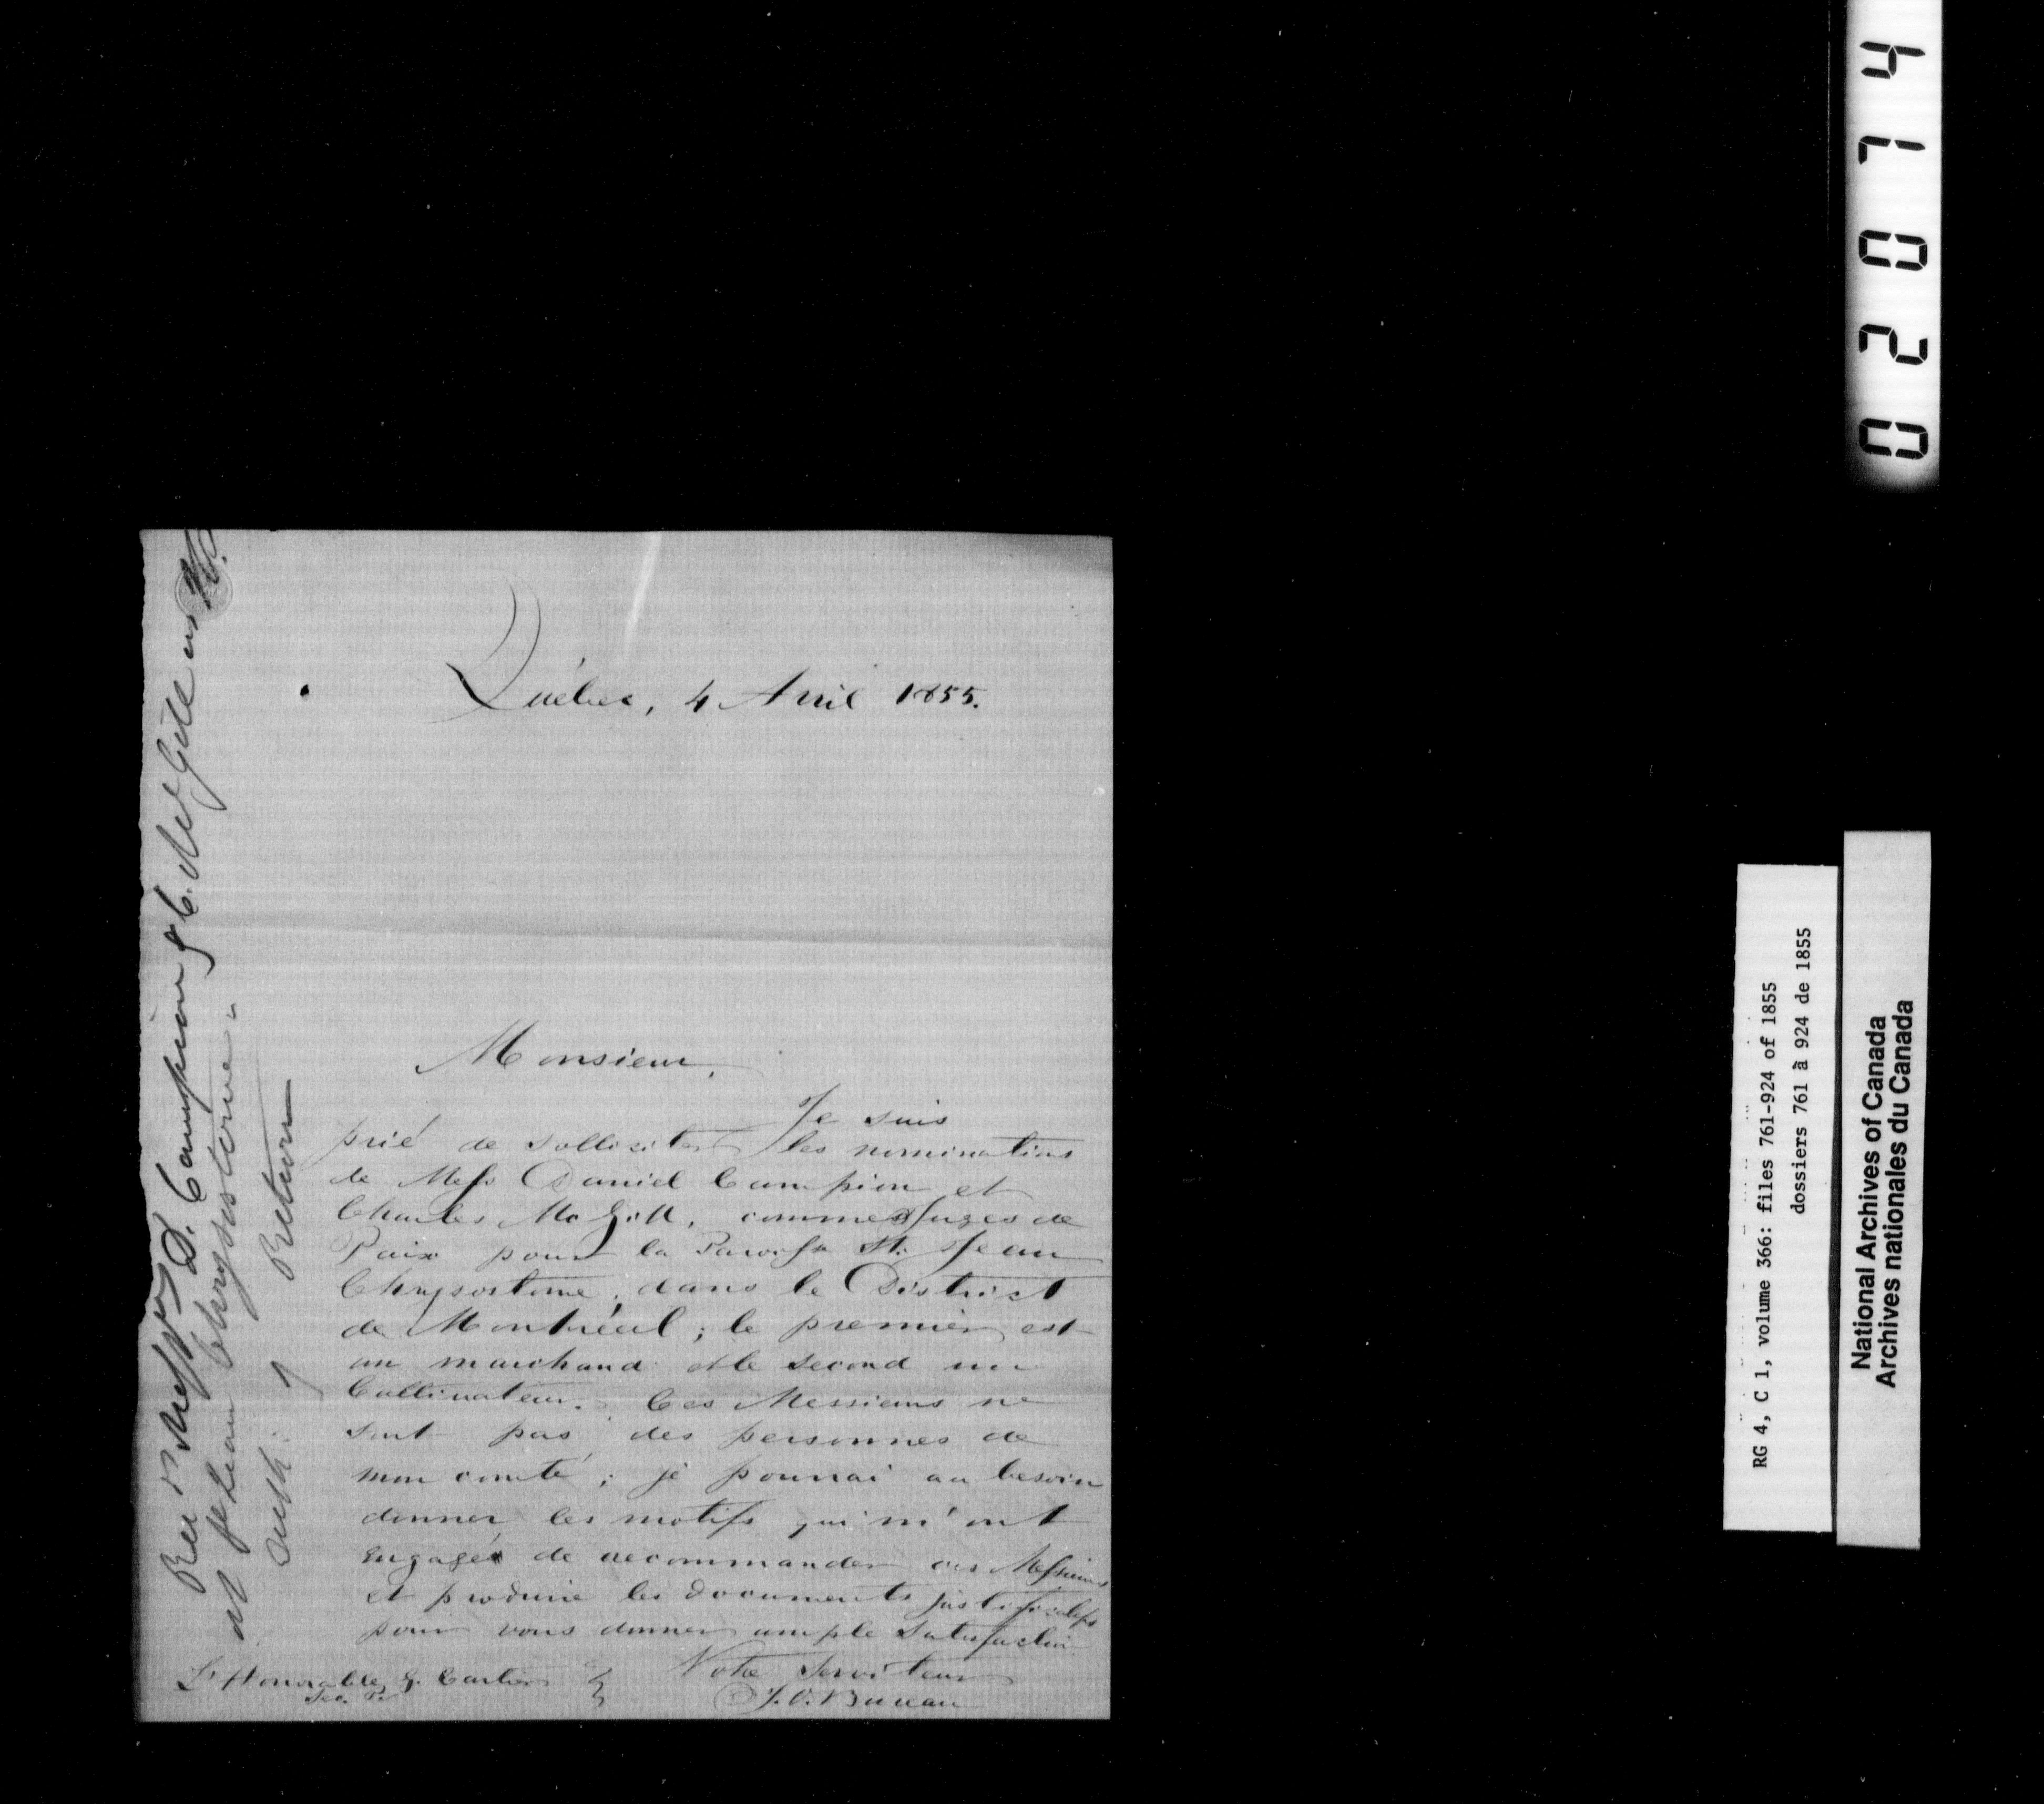 Québec, 4 Avril 1855.
Monsieur,
Je suis
prié de solliciter les nominations
de Mess Daniel Campion et
Charles McGill, comme Juges de
Paix pour la Paroisse St. Jean
Chrysostome, dans le District
de Montréal; le premier est
un marchand et le second un
Cultivateur. Ces Messieurs ne
sont pas des personnes de
mon comté; je pourrai au besoin
donner les motifs qui m'ont
engagé de recommander ces Messieurs
et produire les documents justificatifs
pour vous donner ample satisfaction
Votre Serviteur
J. O. Bureau
L'Honorable G. Cartier
Sec. P.
Messrs D. Campion & C. McGill
at St Jean Chrysostome.
Return
0 2 0 7 4
RG 4, C 1, volume 366: files 761-924 of 1855
dossiers 761 à 924 de 1855
National Archives of Canada
Archives nationales du Canada